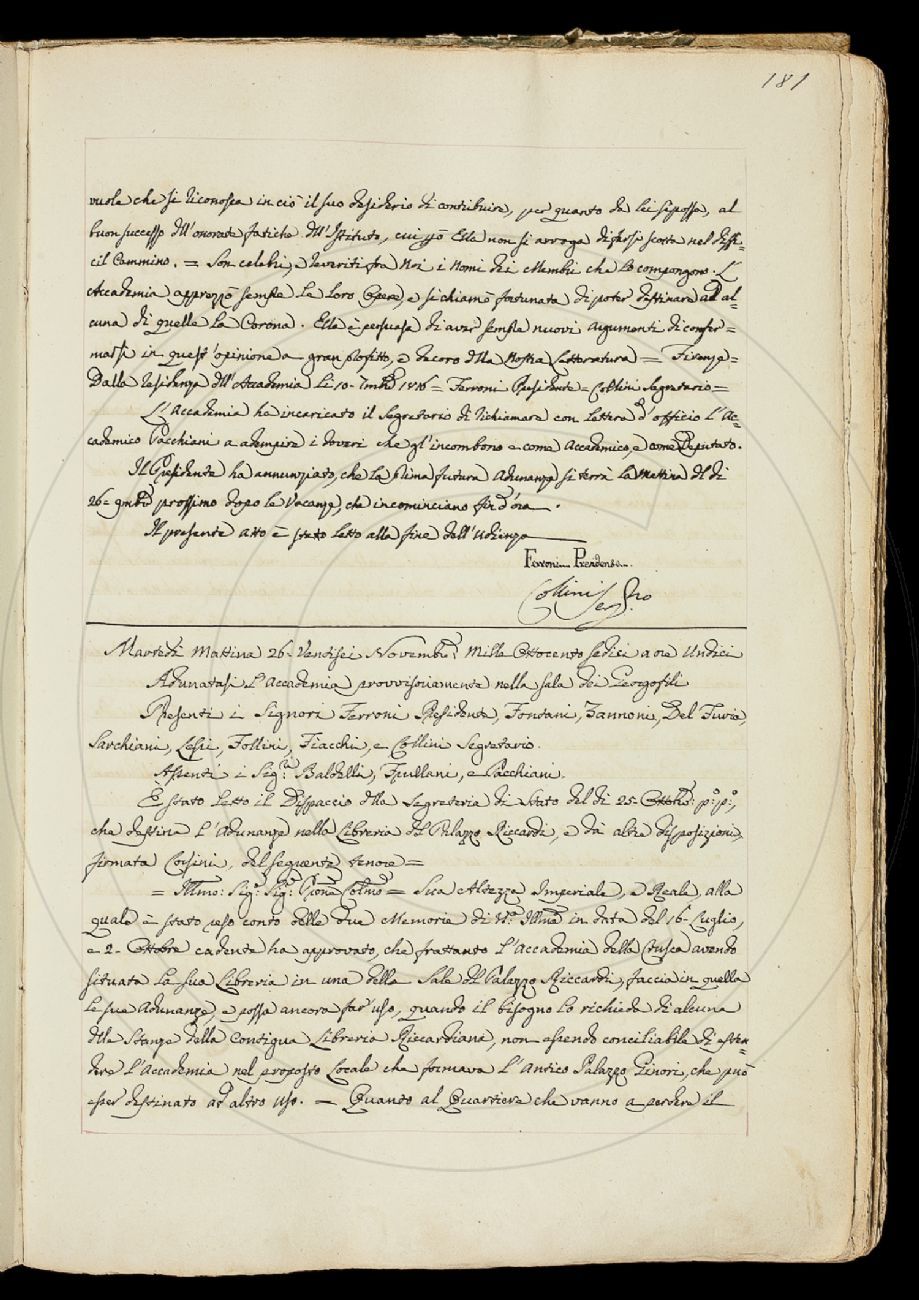 181
vuole che si riconosca in ciò il suo desiderio di contribuire, per quanto da lei si possa, al
buon successo dell'onorate fatiche dell'Istituto, cui però Ella non si arroga di farsi scorta nel diffi=
cil Cammino. = Son celebri, e reveriti fra Noi i Nomi dei Membri che lo compongono. L'
Accademia apprezzò sempre le loro Opere, e si chiamò fortunata di poter destinare ad al=
cuna di quelle la Corona. Ella è persuasa di aver sempre nuovi argumenti di confer=
marsi in quest'opinione a gran profitto, e decoro della Nostra Letteratura = Firenze =
Dalla residenza dell'Accademia Li 10. 7mbre 1816 = Ferroni Presidente = Collini Segretario =
L'Accademia ha incaricato il Segretario di richiamare con lettera d'officio l'Ac=
cademico Pacchiani a adempire i doveri che gl'incombono e come Accademico, e come Deputato.
Il Presidente ha annunziato, che la prima futura Adunanza si terrà la mattina del dì
26. 9mbre prossimo dopo le Vacanze, che incominciano fin d'ora.
Il presente atto è stato letto alla fine dell'Udienza
Ferroni Presidente
Collini Segrio
Martedì Mattina 26. Ventisei Novembre Mille Ottocento sedici a ore Undici
Adunatasi l'Accademia provvisoriamente nella sala dei Georgofili
Presenti i Signori Ferroni Presidente, Fontani, Zannoni, Del Furia,
Sarchiani, Lessi, Follini, Fiacchi, e Collini Segretario.
Assenti i Sigri Baldelli, Frullani, e Pacchiani.
È stato letto il Dispaccio della Segreteria di Stato del dì 25. Ottobre p.o p.o,
che destina l'Adunanze nella Libreria del Palazzo Riccardi, e dà altre disposizioni,
firmata Corsini, del seguente tenore =
= Illmo: Sig: Sig: Prone Colmo = Sua Altezza Imperiale, e Reale, alla
quale è stato reso conto delle due Memorie di V.S. Illma in data del 16. Luglio,
e 2. Ottobre cadente ha approvato, che frattanto l'Accademia della Crusca avendo
situata la sua Libreria in una delle Sale del Palazzo Riccardi, faccia in quella
le sue Adunanze, e possa ancora far uso, quando il bisogno lo richieda di alcuna
delle Stanze della Contigua Libreria Riccardiana, non essendo conciliabile di esten=
dere l'Accademia nel proposto Locale che formava l'Antico Palazzo Ginori, che può
esser destinato ad altro uso. = Quanto al Quartiere che vanno a perdere il